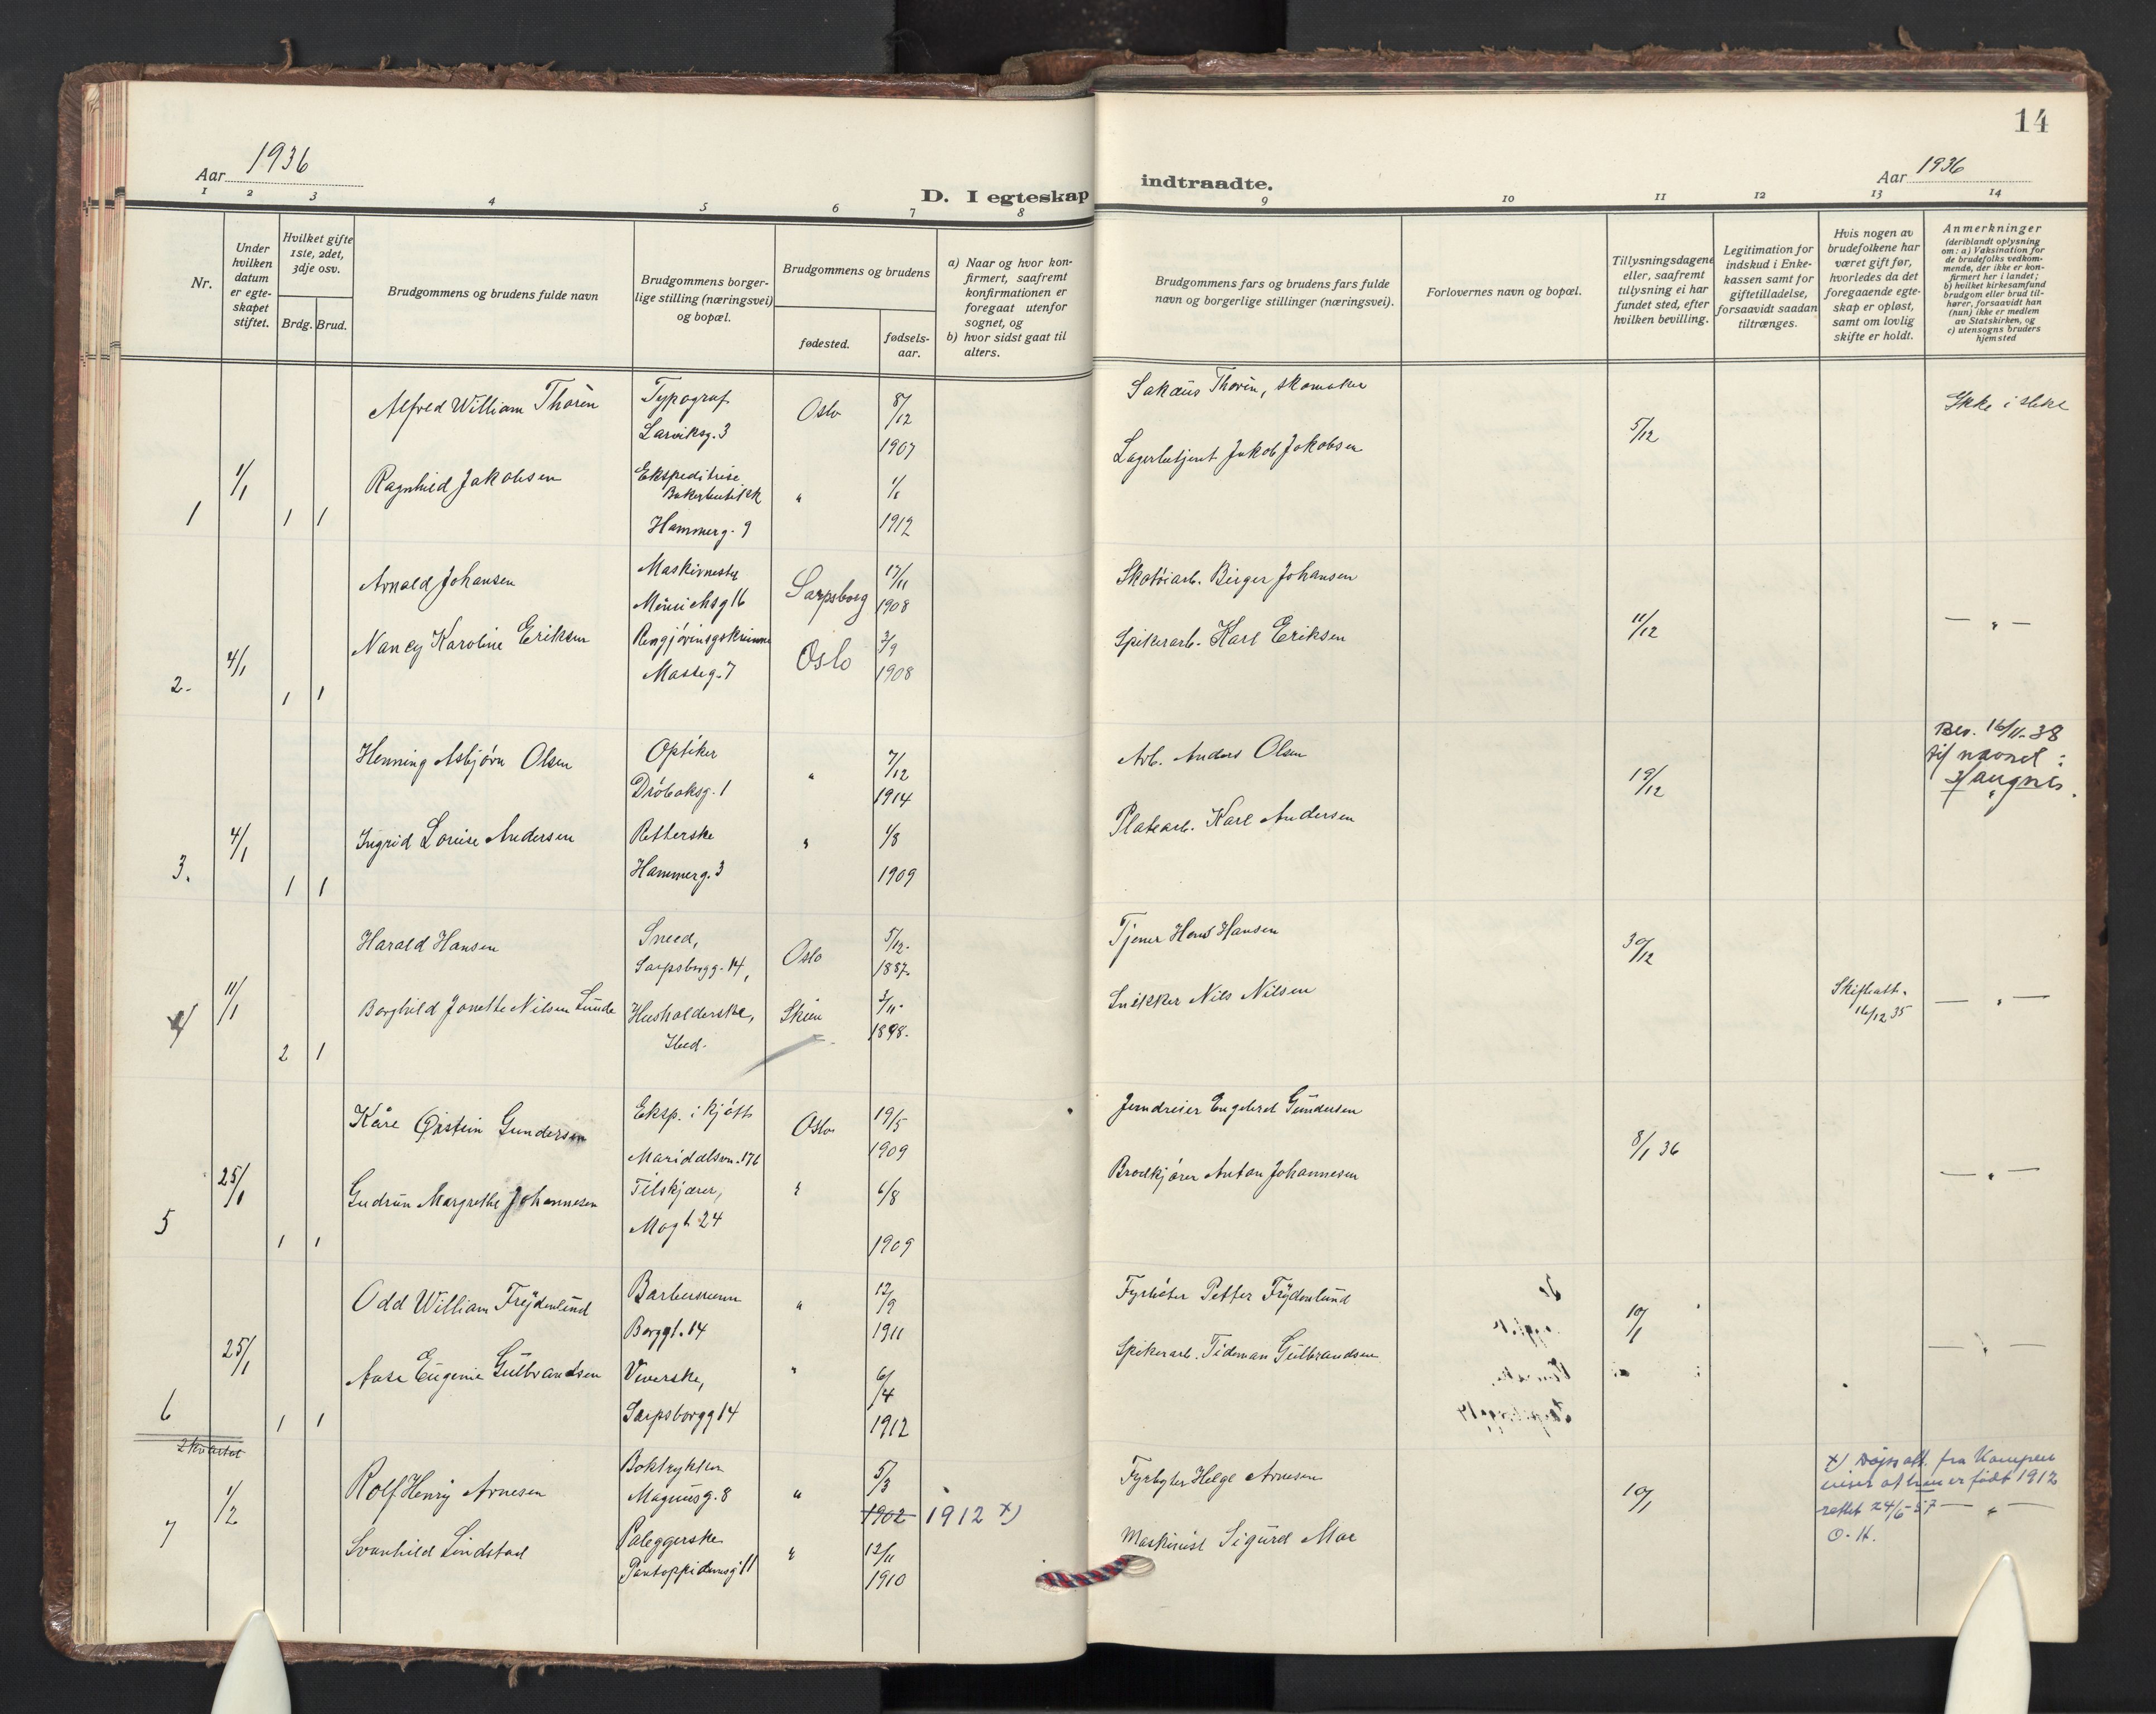 14
Aar 1936
Aar 1936
D. I egteskap indtraadte.
1 2 3 4 5 6 7 8 9 10 11 12 13 14
Nr.
Under hvilken datum er egteskapet stiftet.
Hvilket gifte 1ste, 2det, 3dje osv.
Brdg. Brud.
Brudgommens og brudens fulde navn
Brudgommens borgerlige stilling (næringsvei) og bopæl.
Brudgommens og brudens
fødested.
fødselsaar.
a) Naar og hvor konfirmert, saafremt konfirmationen er foregaat utenfor sognet, og
b) hvor sidst gaat til alters.
Brudgommens fars og brudens fars fulde navn og borgerlige stillinger (næringsvei).
Forlovernes navn og bopæl.
Tillysningsdagene eller, saafremt tillysning ei har fundet sted, efter hvilken bevilling.
Legitimation for indskud i Enkekassen samt for giftetilladelse, forsaavidt saadan tiltrænges.
Hvis nogen av brudefolkene har været gift før, hvorledes da det foregaaende egteskap er opløst, samt om lovlig skifte er holdt.
Anmerkninger
(deriblandt oplysning om: a) Vaksination for de brudefolks vedkommende, der ikke er konfirmert her i landet;
b) hvilket kirkesamfund brudgom eller brud tilhører, forsaavidt han (hun) ikke er medlem av Statskirken, og
c) utensogns bruders hjemsted
Alfred William Thorin Typograf Oslo 8/12 Sakæus Thorin, skomaker Ikke i slekt
Larviksg. 3 1907 5/12
1 1/1 1 1 Ragnhild Jakobsen Ekspeditrise " 1/1 Lagerbetjent Jakob Jakobsen
Bakerbutikk
Hammerg. 9 1912
Arnald Johansen Sarpsborg 17/11 Skotøiarb. Birger Johansen
Münichsg 16 1908 11/12 — " —
2. 4/1 1 1 Nancy Karoline Eriksen Rengjøringskvinne Oslo 3/9 Spikerarb. Karl Eriksen
Masseg. 7 1908
Henning Asbjørn Olsen Optiker " 7/12 Arb. Anders Olsen Bev. 16/11-38
Drøbaksg. 1 1914 19/12 til navnet:
Haugnes.
3. 4/1 1 1 Ingrid Louise Andersen Retterske " 1/8 Platearb. Karl Andersen
Hammerg. 3 1909
Harald Hansen Smed, Oslo 5/12. Tjener Hans Hansen 30/12
Sarpsbrgg. 14, 1887.
4 11/1 2 1 Borghild Jonette Nilsen Lunde Husholderske, Skien 3/11. Snekker Nils Nilsen Skifteatt. 16/12 35 — " —
Sted. 1898.
Kåre Øistein Gundersen Eksp. i kjøtt Oslo 19/5 Jerndreier Engebret Gundersen
Maridalsvn. 176 1909 8/1 36
5 25/1 1 1 Gudrun Margrethe Johannesen Tilskjærer, " 6/8 Brødkjører Anton Johannesen — " —
Mogt 24 1909
Odd William Frydenlund Barbermann " 12/9 Fyrbøter Petter Frydenlund
Borggt. 14 1911 10/1
6 25/1 1 1 Aase Eugenie Gulbrandsen Veverske, " 6/4 Spikerarb. Tideman Gulbrandsen — " —
Sarpsborgg 14 1912
2 kvartal
Rolf Henry Arnesen Boktrykker " 5/3 Fyrbøter Helge Arnesen
7 1/2 Magnusg. 8 1902 1912 x) 10/1 — " —
x) Dåpsatt. fra Kampen
viser at han er født 1912
rettet 24/6-57
O. H.
Svanhild Lindstad Påleggerske " 12/11 Maskinist Sigurd Moe
Pontoppidansg 11 1910